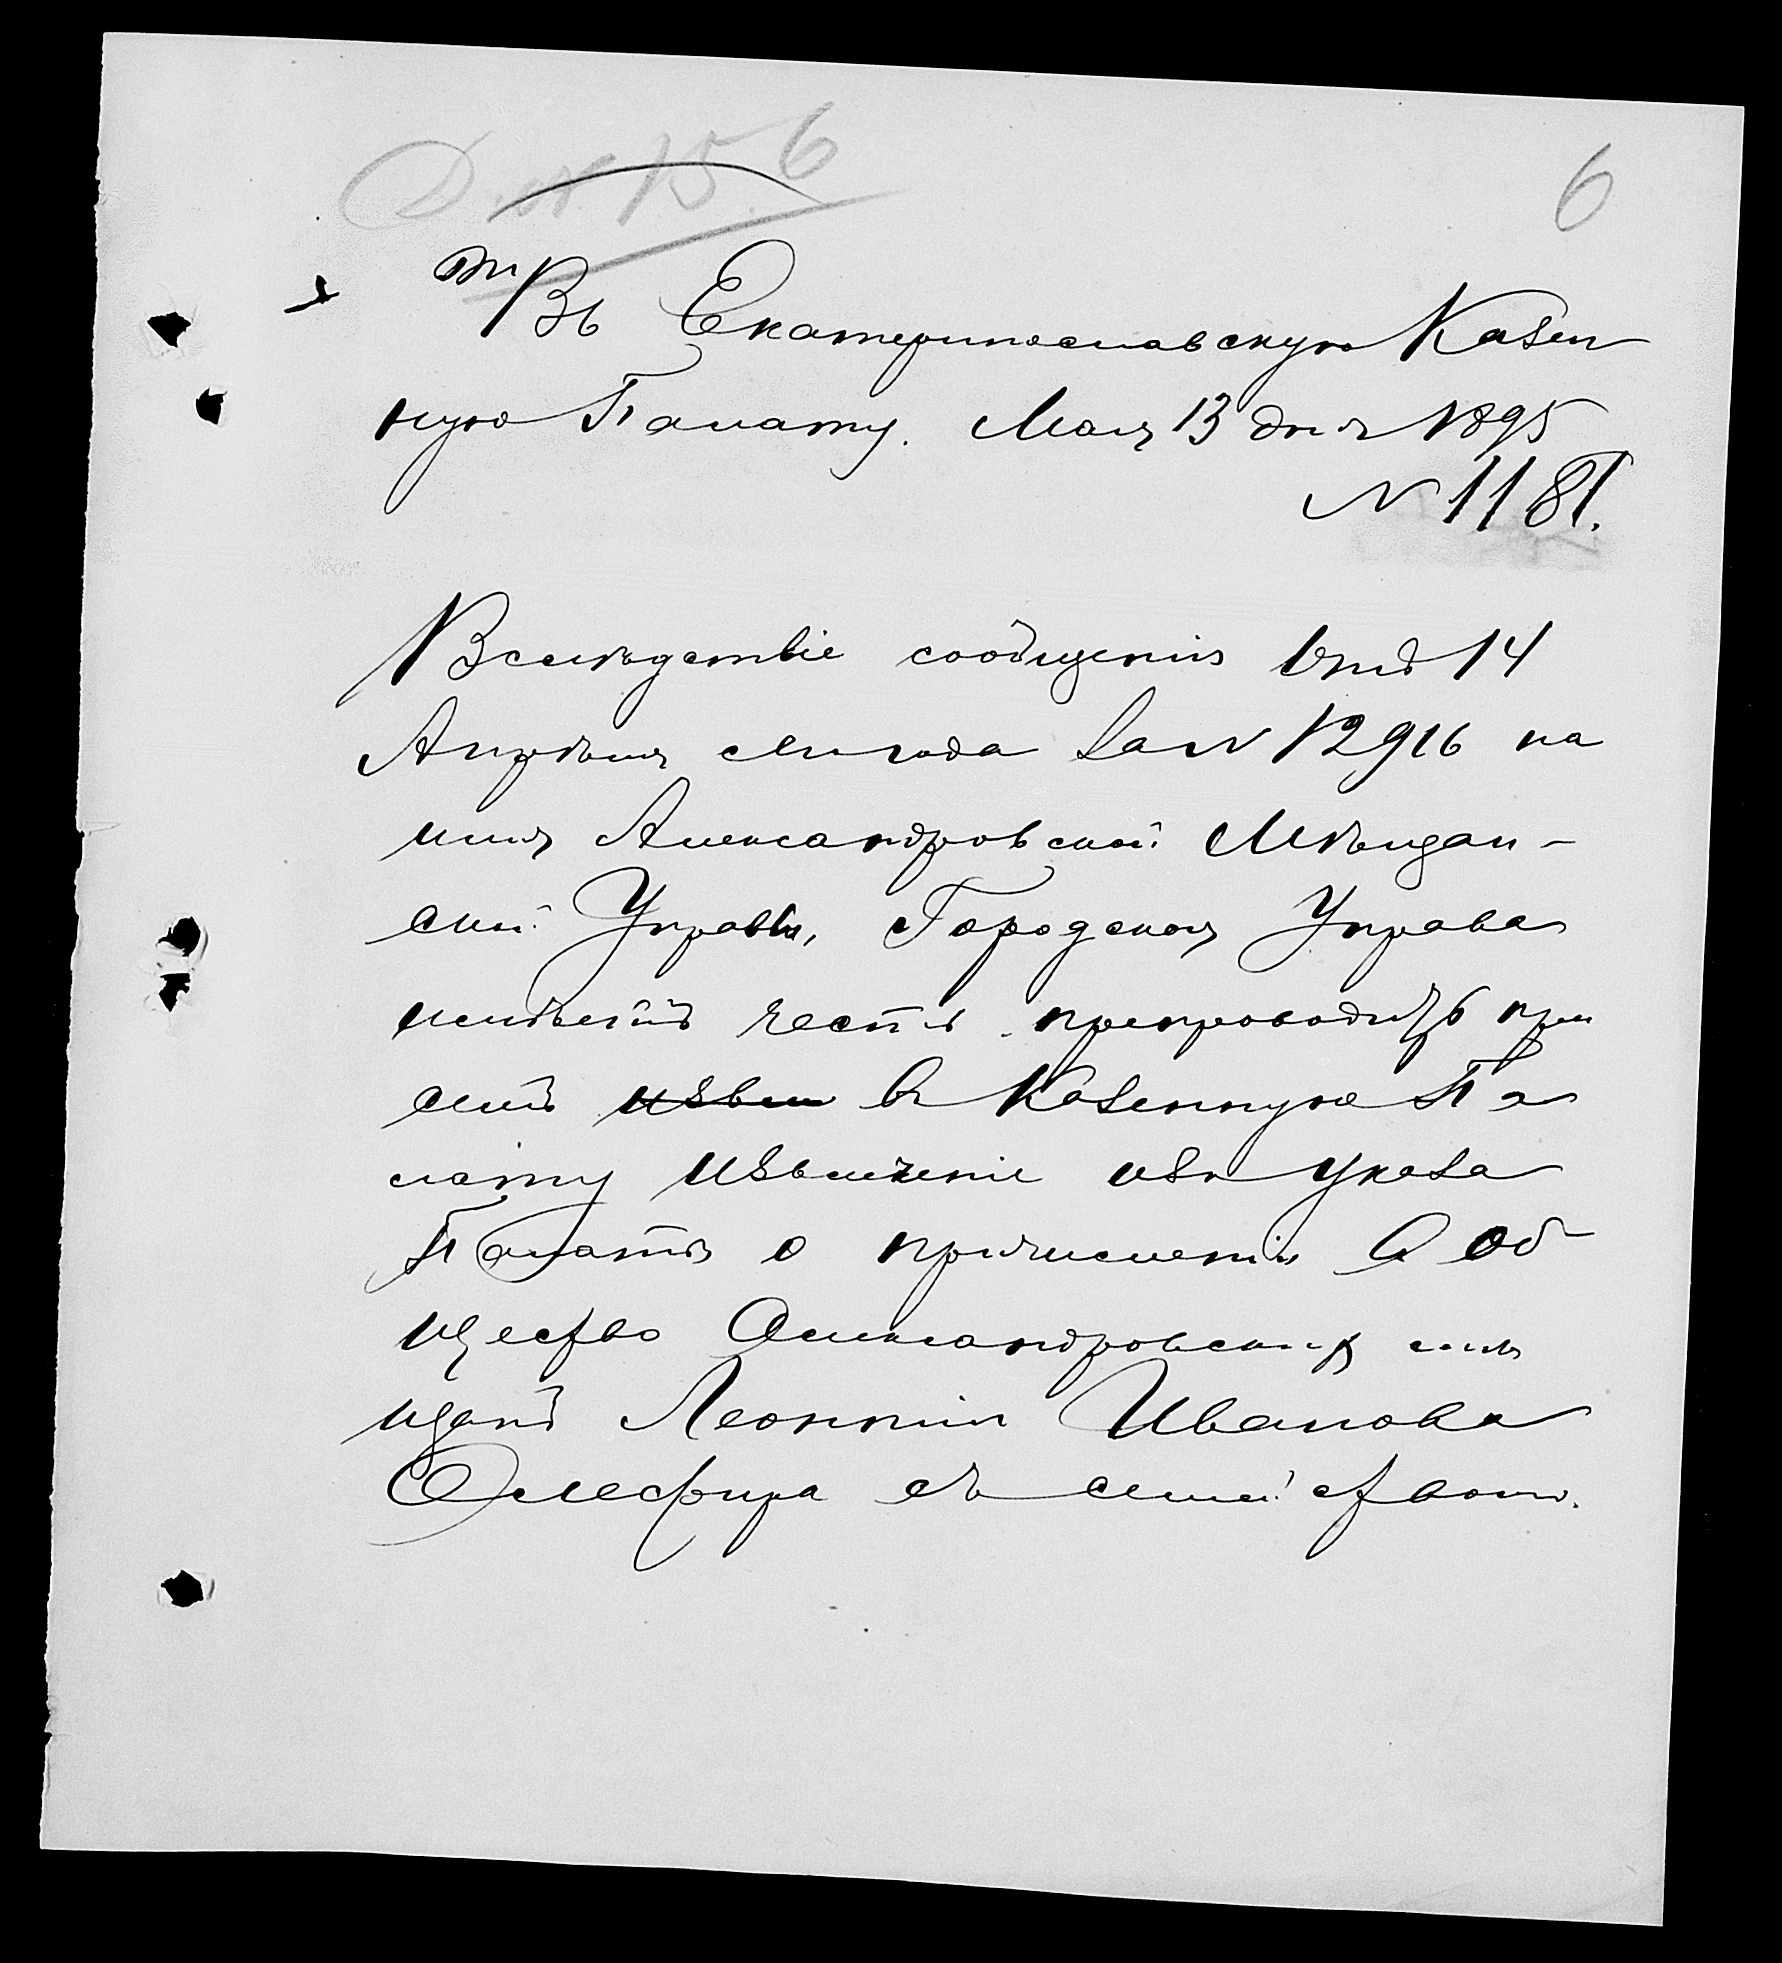 Д. № 15. 6
6
Въ Екатеринославскую Казен
ную Палату. Мая 13 дня 1895
№ 1181.
Вслѣдствіе сообщенія отъ 14
Апрѣля сего года за № 12916 на
имя Александровской Мѣщан-
ской Управы, Городская Управа
имѣетъ честь препроводить при
семъ извле въ Казенную Па
лату извлеченіе изъ указа
Палаты о причисленіи въ об
щество Александровскихъ мѣ
щанъ Леонтія Иванова
Олефира съ семействомъ.